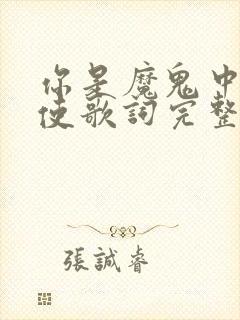 你是魔鬼中
使歌詞完整
張誠睿